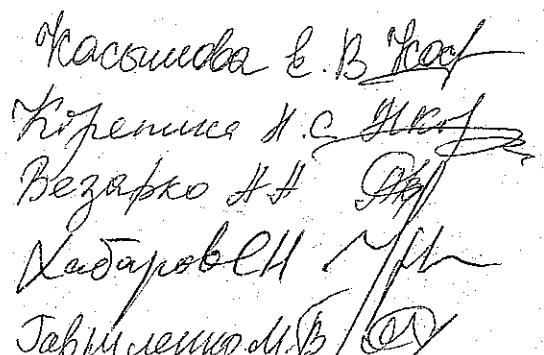 Касымова Е. В
Корепина Н. С
Везарко Н Н
Хабаров С Н
Гавриленко М. В